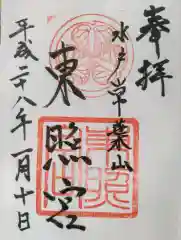 奉拝
水戸常葉山
東照宮
平成二十八年一月十日